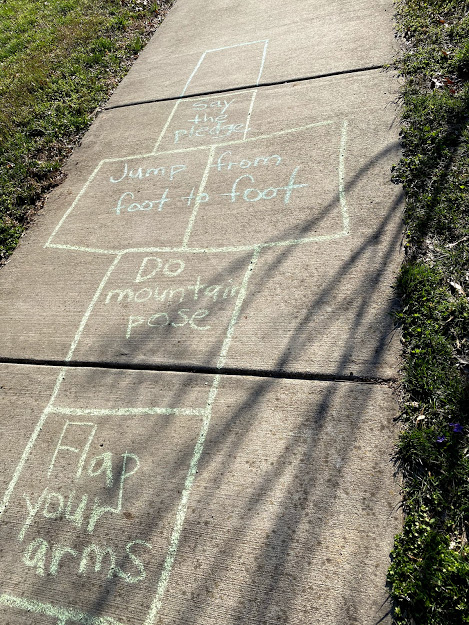 say
the
pledge
Jump from
foot to foot
Do
mountain
pose
Flap
your
arms